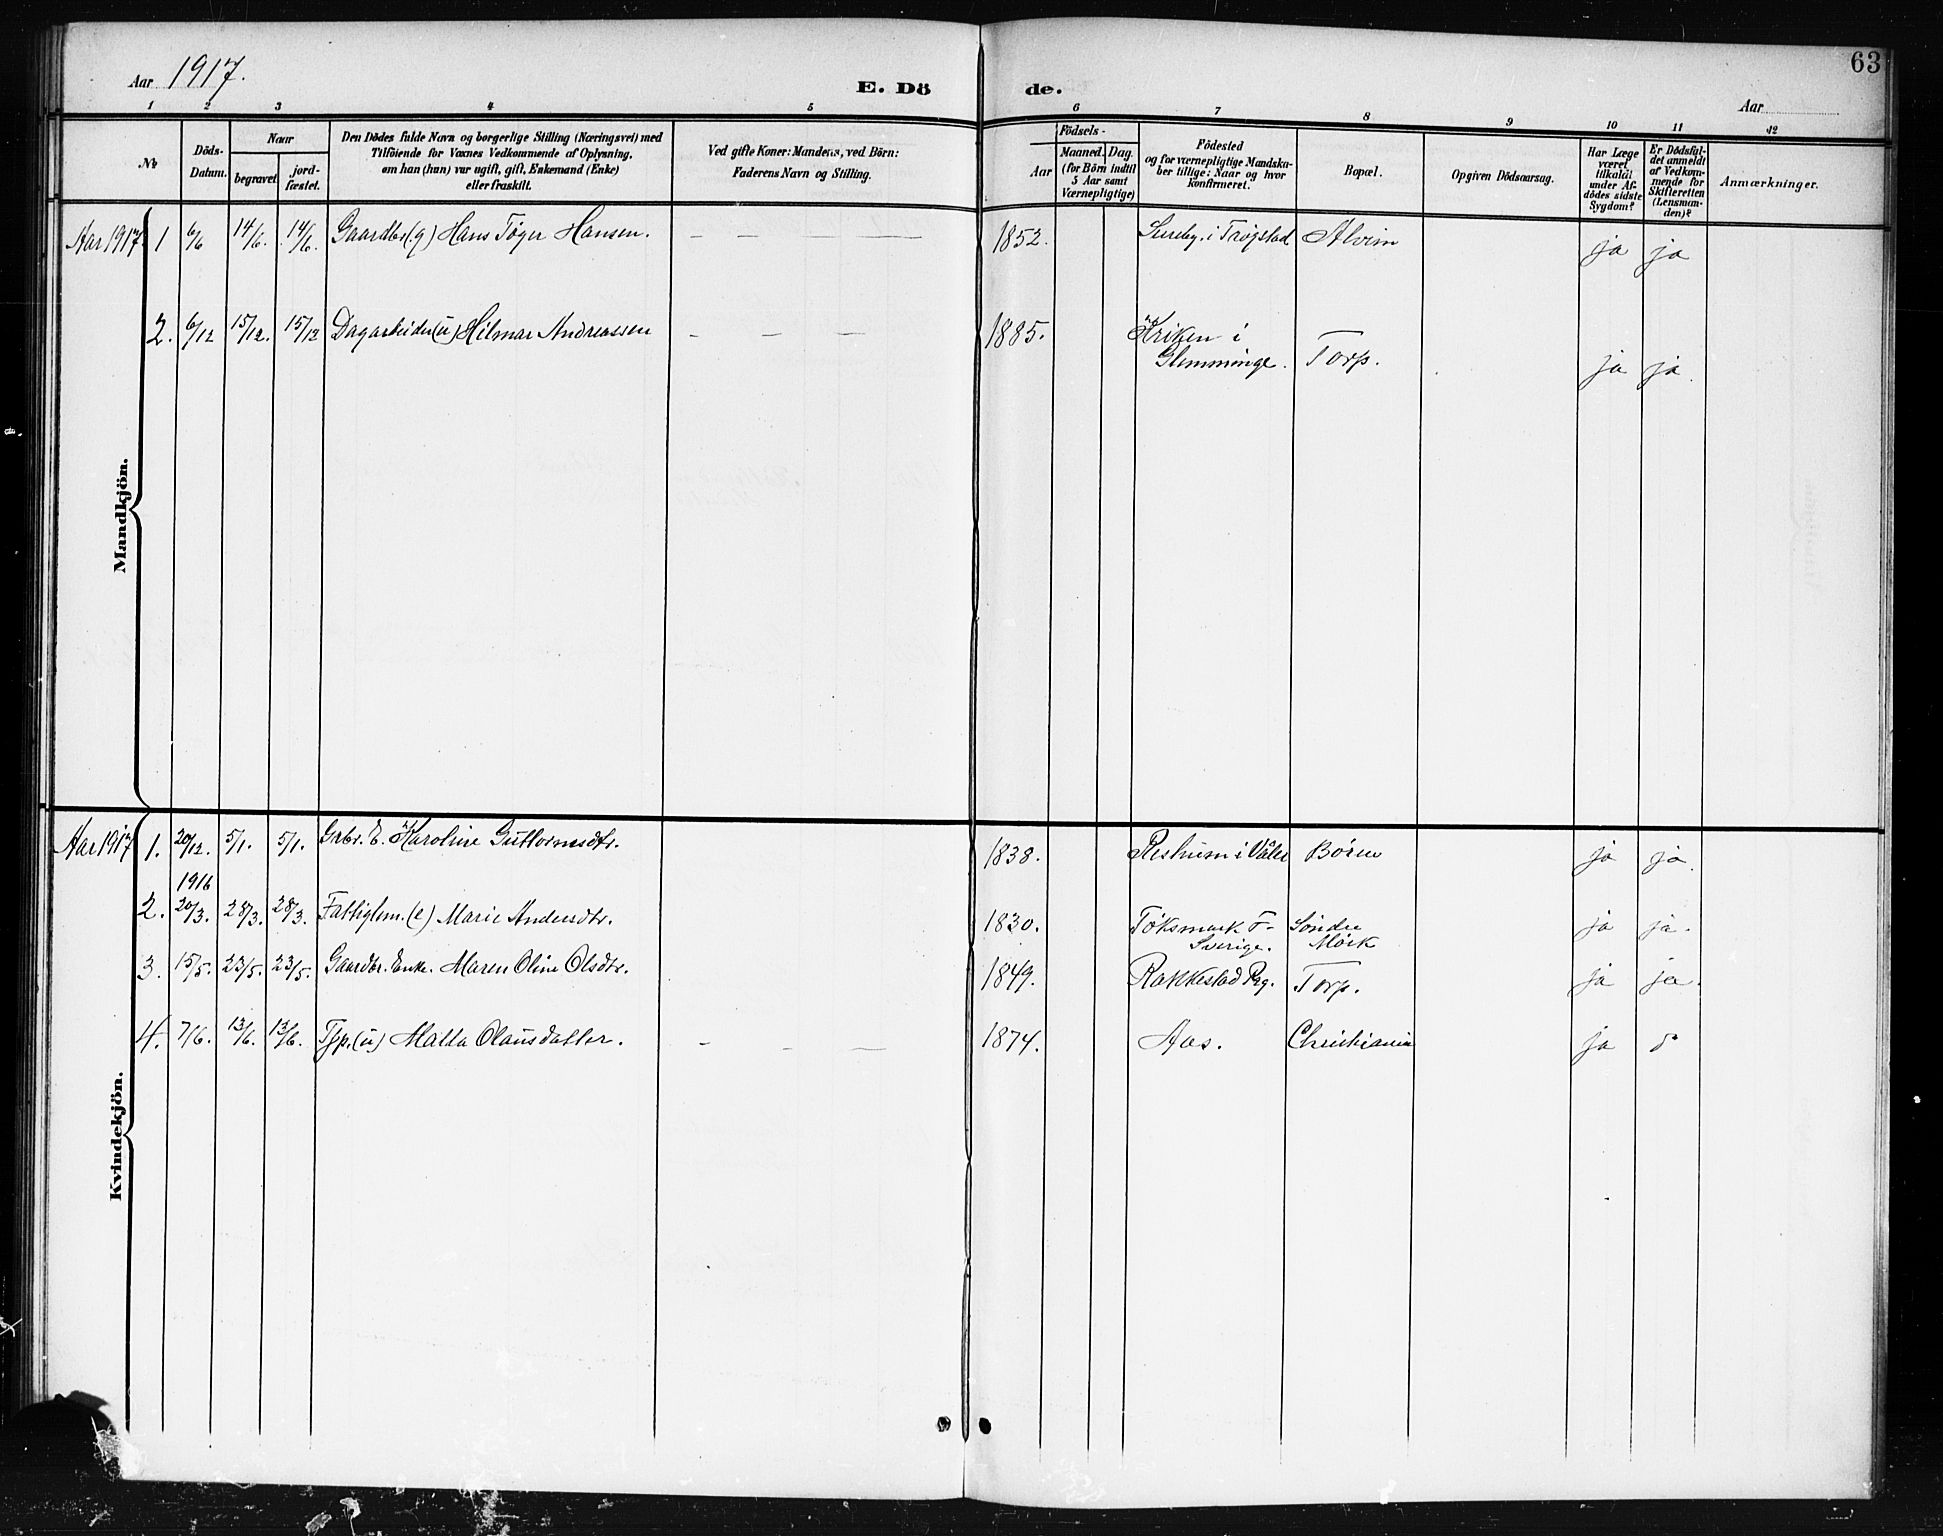 63
Aar 1917.
E. Dö de.
Aar
1 2 3 4 5 6 7 8 9 10 11 12
No
Döds-Datum.
Naar
begravet.
jord-fæstet.
Den Dödes fulde Navn og borgerlige Stilling (Næringsvei) med
Tilföiende for Voxnes Vedkommende af Oplysning,
om han (hun) var ugift, gift, Enkemand (Enke)
eller fraskilt.
Ved gifte Koner: Mandens, ved Börn:
Faderens Navn og Stilling.
Födsels-
Aar
Maaned. Dag.
(for Börn indtil
5 Aar samt
Værnepligtige)
Födested
og for værnepligtige Mandska-
ber tillige: Naar og hvor
konfirmeret.
Bopæl.
Opgiven Dödsaarsag.
Har Læge
været
tilkaldt
under Af-
dödes sidste
Sygdom?
Er Dödsfal-
det anmeldt
af Vedkom-
mende for
Skifteretten
(Lensman-
den)?
Anmærkninger.
Mandkjön.
Aar 1917. 1 6/6 14/6. 14/6. Gaardbr. (g) Hans Töger Hansen. — — — 1852. i Trøgstad Alvim ja ja
2. 6/12 15/12. 15/12 Dagarbeider (u) Hilmar Andreassen — — — 1885. Kriken i
Glemminge. Torp. ja ja.
Kvindekjön.
Aar 1917 1. 20/12. 5/1. 5/1. Grbr. E. Karoline Guttormsdtr. 1838. i Våler Børen ja ja.
1916
2. 20/3. 28/3. 28/3. Fattiglem. (e) Marie Andersdtr. 1830. Töksmark
Sverige. Söndre
Mörk ja ja.
3. 15/5. 23/5. 23/5. Gaardbr. Enke. Maren Oline Olsdtr. 1849. Rakkestad Pg. Torp. ja ja.
4. 7/6. 13/6. 13/6. Tjp. (u) Malla Olausdatter. — — — 1874. Aas. Christiania ja do